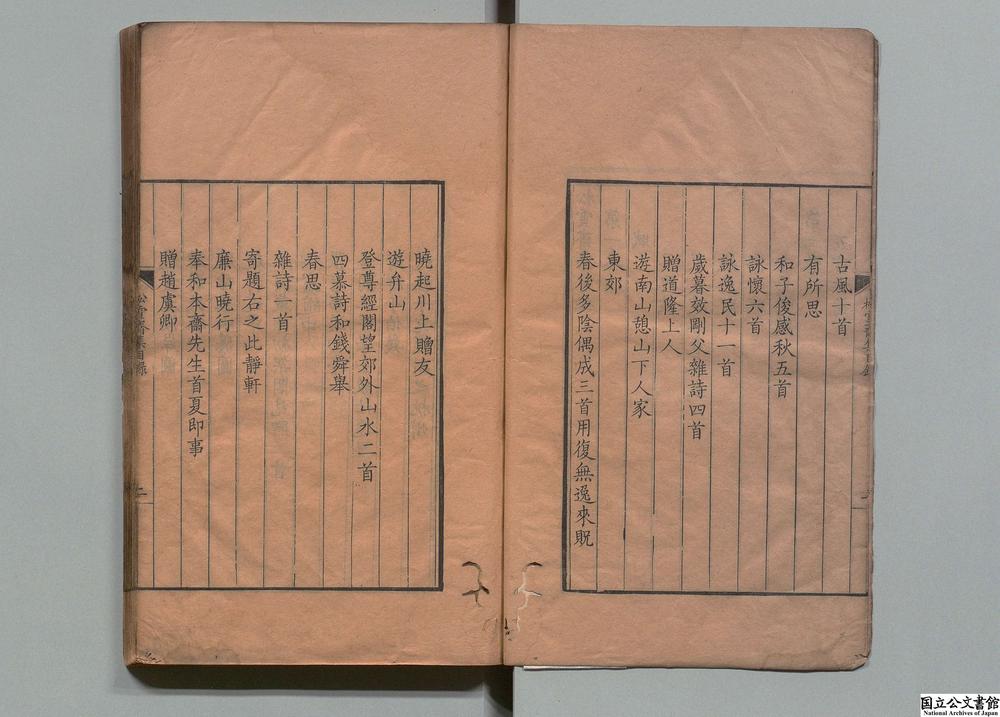 古風十首
有所思
和子俊感秋五首
詠懷六首
詠逸民十一首
歲暮效剛父雜詩四首
贈道隆上人
遊南山憩山下人家
東郊
春後多陰偶成三首用復無逸來貺
曉起川上贈友
遊弁山
登尊經閣望郊外山水二首
四慕詩和錢舜舉
春思
雜詩一首
寄題右之此靜軒
廉山曉行
奉和本齋先生首夏即事
贈趙虞卿
松雪齋集目錄
二
国立公文書館
National Archives of Japan